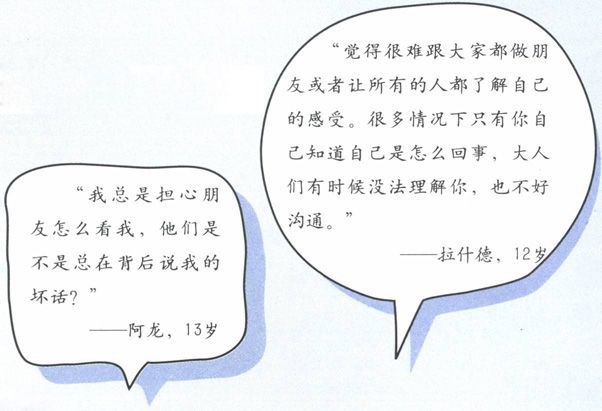 “觉得很难跟大家都做朋
友或者让所有的人都了解自己
的感受。很多情况下只有你自
己知道自己是怎么回事，大人
们有时候没法理解你，也不好
沟通。”
——拉什德，12岁
“我总是担心朋
友怎么看我，他们是
不是总在背后说我的
坏话？”
——阿龙，13岁